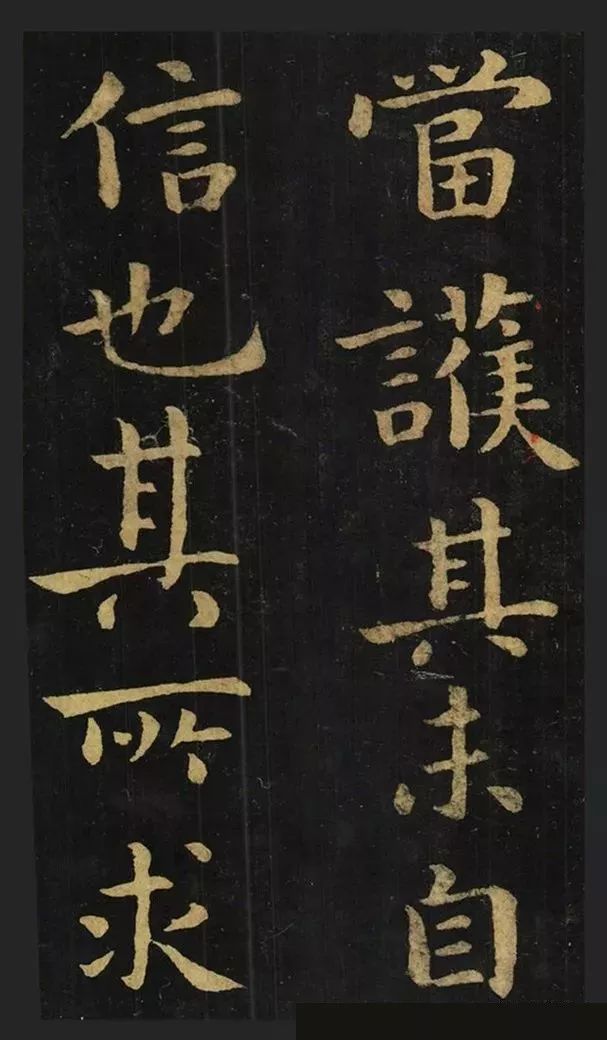 當護其未自
信也其所求